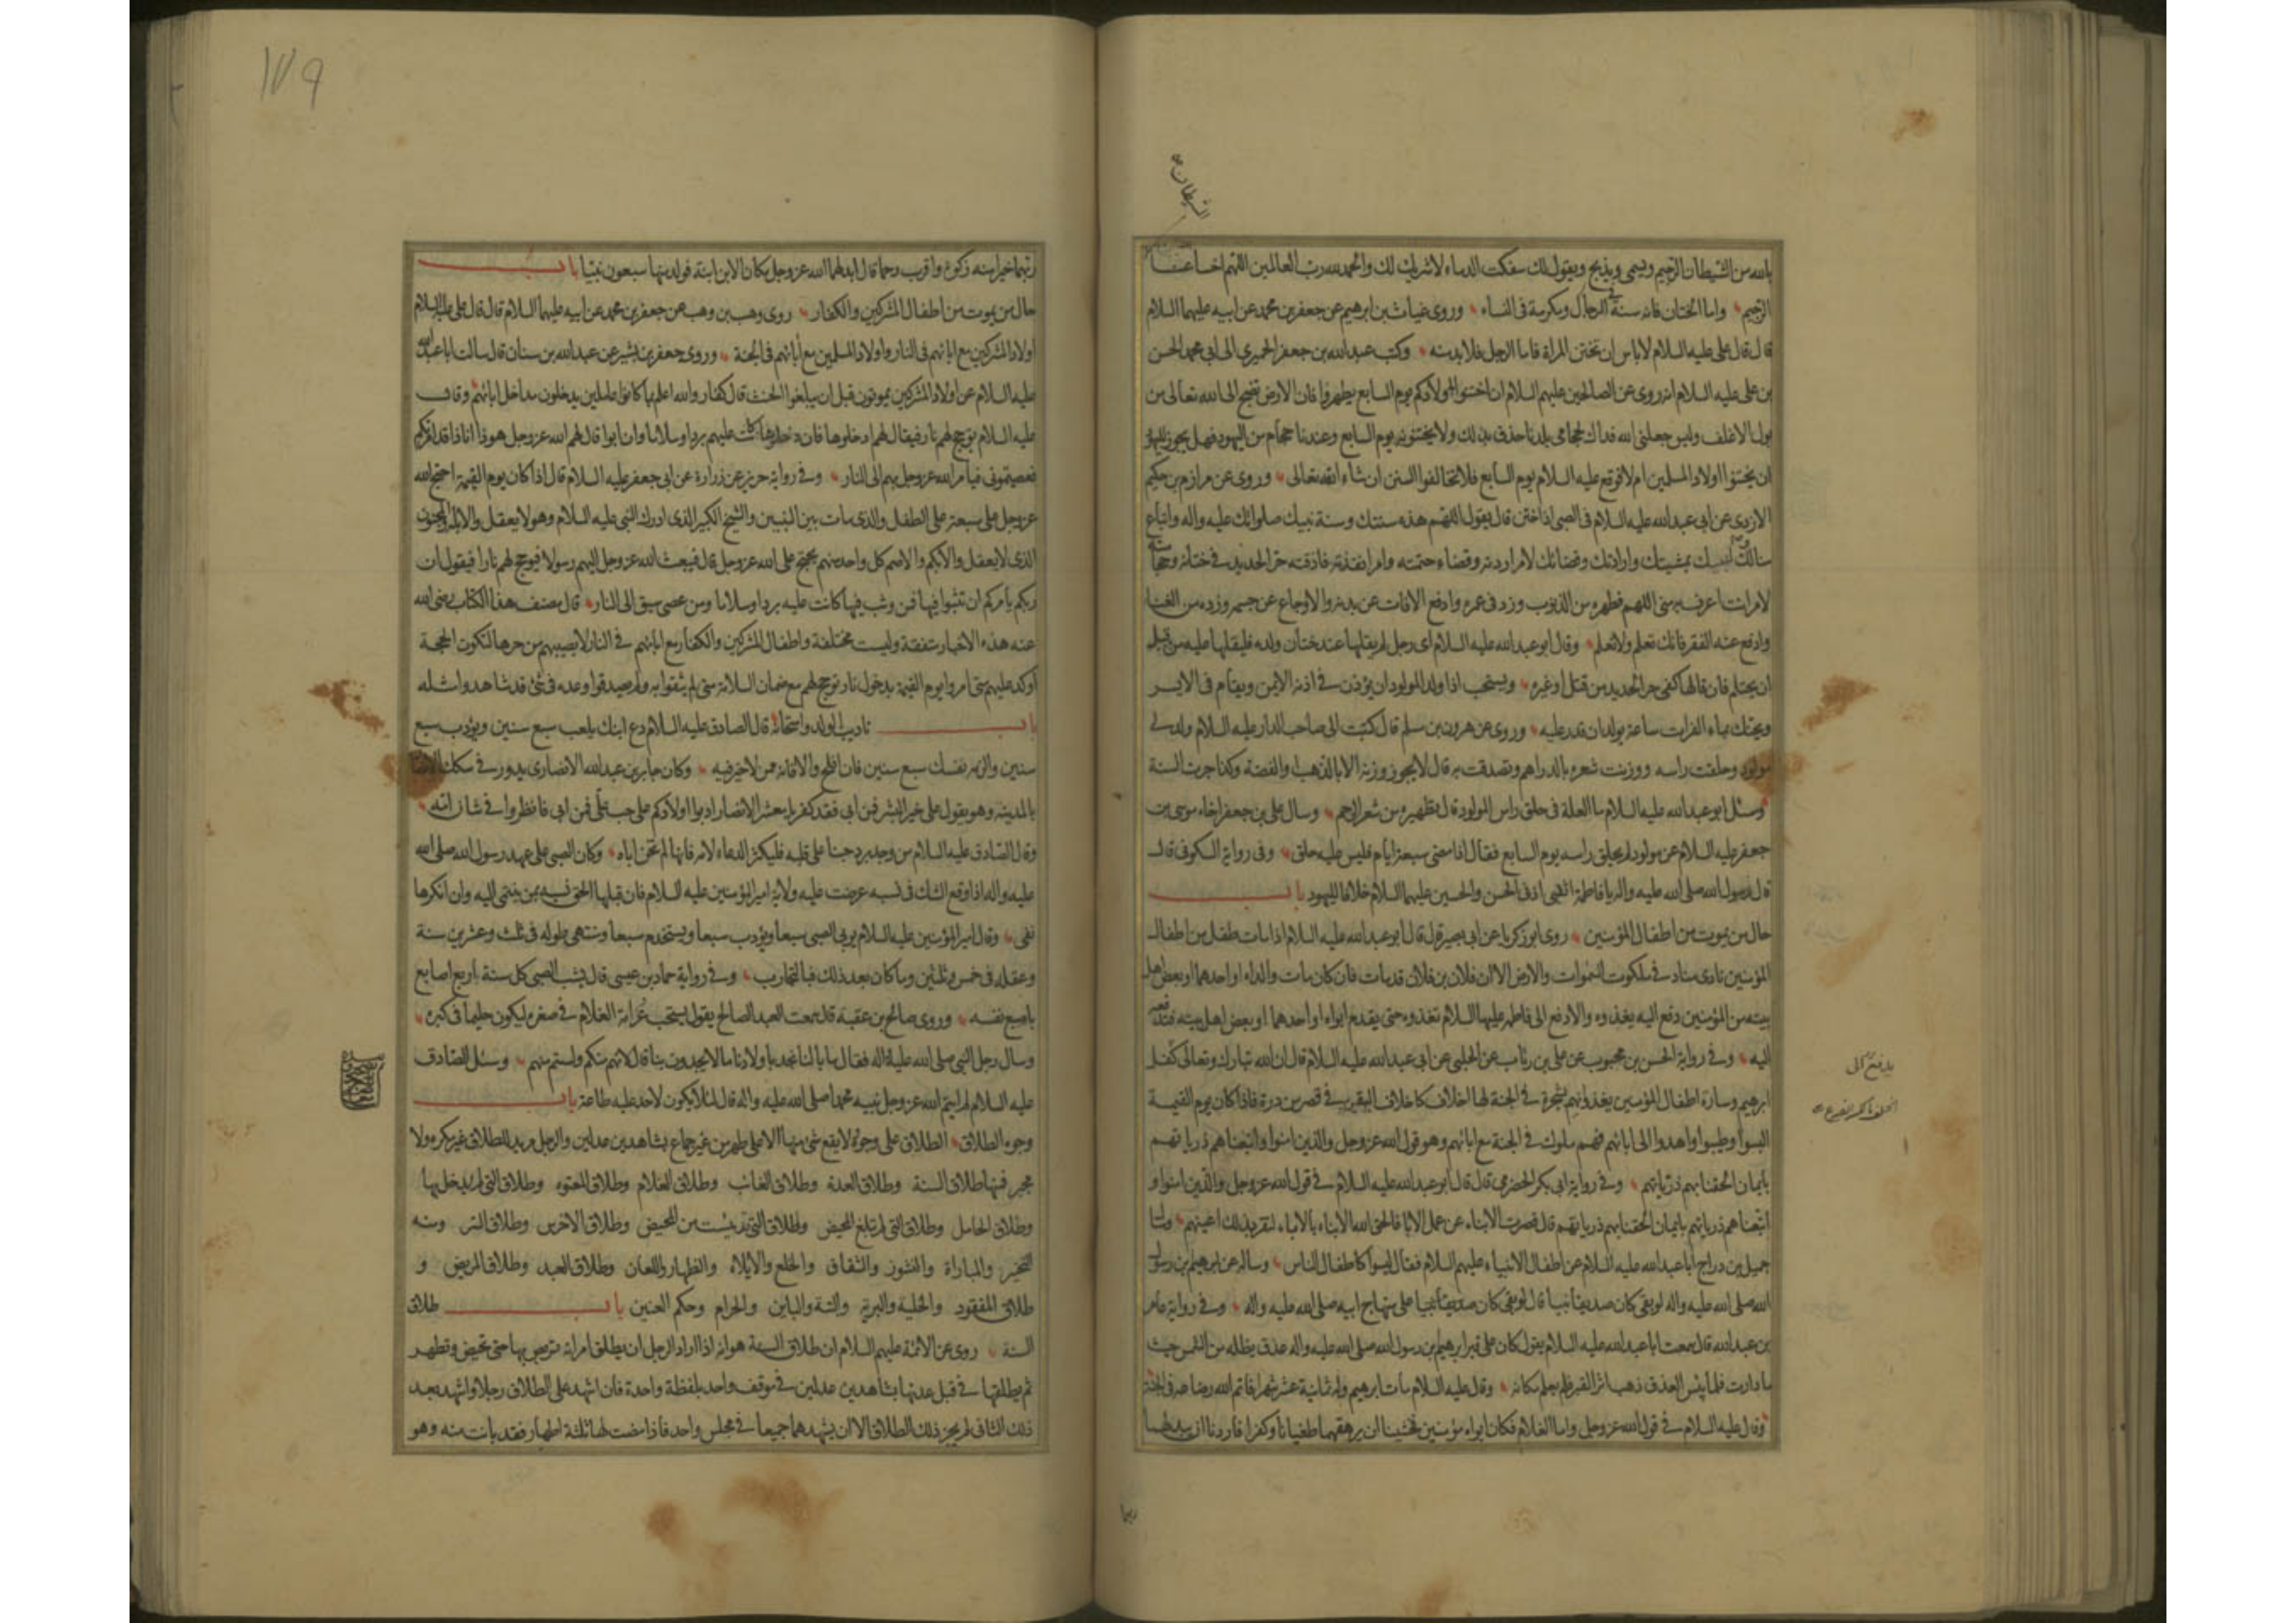 الشيطان
بالله من الشيطان الرجيم ويسمى ويذبح ويقول لك سفكت الدماء لا شريك لك والحمد لله رب العالمين اللهم اخسأ عنا
الرجيم واما الختان فانه سنة في الرجال ومكرمة في النساء وروى غياث بن ابرهيم عن جعفر بن محمد عن ابيه عليهما السلام
قال قال على عليه السلام لا باس ان تختتن المراة فاما الرجل فلا بد منه وكتب عبد الله بن جعفر الحميري الى ابي محمد الحسن
بن على عليه السلام انه روى عن الصالحين عليهم السلام ان اختنوا اولادكم يوم السابع يطهروا فان الارض تضج الى الله تعالى من
بول الاغلف وليس جعلنى الله فداك لحجامى بلدنا حذق بذلك ولا يختنونه يوم السابع وعندنا حجام من اليهود فهل يجوز لليهود
ان يختنوا اولاد المسلمين ام لا فوقع عليه السلام يوم السابع فلا تخالفوا السنن ان شاء الله تعالى وروى عن مرازم بن حكيم
الازدى عن ابى عبد الله عليه السلام فى الصبى اذا ختن قال يقول اللهم هذه سنتك وسنة نبيك صلواتك عليه واله واتباع
منا لك ولنبيك بمشيتك وارادتك وقضائك لامر اردته وقضاء حتمته وامر انفذته فاذقته حر الحديد فى ختانه وحجامته
لامر انت اعرف به منى اللهم فطهره من الذنوب وزد فى عمره وادفع الافات عن بدنه والاوجاع عن جسمه وزده من الغنا
وادفع عنه الفقر فانك تعلم ولا نعلم وقال ابو عبد الله عليه السلام اى رجل لم يقلها عند ختان ولده فليقلها عليه من قبل
ان يحتلم فان قالها كفى حر الحديد من قتل او غيره ويستحب اذا ولد المولود ان يؤذن فى اذنه الايمن ويقام فى الايسر
ويحنك بماء الفرات ساعة يولد ان قدر عليه وروى عن هرون بن مسلم قال كتبت الى صاحب الدار عليه السلام ولد لى
مولود وحلقت راسه ووزنت شعره بالدراهم وتصدقت به قال لا يجوز وزنه الا بالذهب او الفضة وكذا جرت السنة
وسئل ابو عبد الله عليه السلام ما العلة فى حلق راس المولود قال تطهيره من شعر الرحم وسال على بن جعفر اخاه موسى بن
جعفر عليه السلام عن مولود لم يحلق راسه يوم السابع فقال اذا مضى سبعة ايام فليس عليه حلق وفى رواية السكونى قال
قال رسول الله صلى الله عليه واله يا فاطمة اثقبى اذنى الحسن والحسين عليهما السلام خلافا لليهود باب
حال من يموت من اطفال المؤمنين روى ابو زكريا عن ابى بصير قال قال ابو عبد الله عليه السلام اذا مات طفل من اطفال
المؤمنين نادى مناد فى ملكوت السموات والارض الا ان فلان بن فلان قد مات فان كان مات والداه او احدهما او بعض اهل
بيته من المؤمنين دفع اليه يغذوه والا دفع الى فاطمة عليها السلام تغذوه حتى يقدم ابواه او احدهما او بعض اهل بيته فتدفعه
اليه وفى رواية الحسن بن محبوب عن على بن رئاب عن الحلبى عن ابى عبد الله عليه السلام قال ان الله تبارك وتعالى كفل
ابرهيم وسارة اطفال المؤمنين يغذوانهم بشجرة فى الجنة لها اخلاف كاخلاف البقر فى قصر من درة فاذا كان يوم القيمة
البسوا وطيبوا واهدوا الى ابائهم فهم ملوك فى الجنة مع ابائهم وهو قول الله عز وجل والذين امنوا واتبعناهم ذرياتهم
بايمان الحقنا بهم ذرياتهم وفى رواية ابى بكر الحضرمى قال قال ابو عبد الله عليه السلام فى قول الله عز وجل والذين امنوا و
اتبعناهم ذرياتهم بايمان الحقنا بهم ذرياتهم قال قصرت الابناء عن عمل الابا فالحق الله الابناء بالاباء لتقر بذلك اعينهم وسال
جميل بن دراج ابا عبد الله عليه السلام عن اطفال الانبياء عليهم السلام فقال ليسوا كاطفال الناس وساله عن ابرهيم بن رسول
الله صلى الله عليه واله لو بقى كان صديقا نبيا قال لو بقى كان صديقا نبيا على منهاج ابيه صلى الله عليه واله وفى رواية عامر
بن عبد الله قال سمعت ابا عبد الله عليه السلام يقول كان على قبر ابرهيم بن رسول الله صلى الله عليه واله عذق يظله من الشمس حيث
ما دارت فلما يبس العذق ذهب اثر القبر فلم يعلم مكانه وقال عليه السلام مات ابرهيم وله ثمانية عشر شهرا فاتم الله رضاعه فى الجنة
وقال عليه السلام فى قول الله عز وجل واما الغلام فكان ابواه مؤمنين فخشينا ان يرهقهما طغيانا وكفرا فاردنا ان يبدلهما
ربهما
١٧٩
ربهما خيرا منه زكوة واقرب رحما قال ابدلهما الله عز وجل مكان الابن ابنة فولد منها سبعون نبيا باب
حال من يموت من اطفال المشركين والكفار روى وهب بن وهب عن جعفر بن محمد عن ابيه عليهما السلام قال قال على عليه السلام
اولاد المشركين مع ابائهم فى النار واولاد المسلمين مع ابائهم فى الجنة وروى جعفر بن بشير عن عبد الله بن سنان قال سالت ابا عبد الله
عليه السلام عن اولاد المشركين يموتون قبل ان يبلغوا الحنث قال كفار والله اعلم بما كانوا عاملين يدخلون مداخل ابائهم وقال
عليه السلام يؤجج لهم نار فيقال لهم ادخلوها فان دخلوها كانت عليهم بردا وسلاما وان ابوا قال لهم الله عز وجل هوذا انا قد امرتكم
فعصيتمونى فيامر الله عز وجل بهم الى النار وفى رواية حريز عن زرارة عن ابى جعفر عليه السلام قال اذا كان يوم القيمة احتج الله
عز وجل على سبعة على الطفل والذى مات بين النبيين والشيخ الكبير الذى ادرك النبى عليه السلام وهو لا يعقل والابله والمجنون
الذى لا يعقل والابكم والاصم كل واحد منهم يحتج على الله عز وجل قال فيبعث الله عز وجل اليهم رسولا فيؤجج لهم نارا فيقول ان
ربكم يامركم ان تثبوا فيها فمن وثب فيها كانت عليه بردا وسلاما ومن عصى سيق الى النار قال مصنف هذا الكتاب رضى الله
عنه هذه الاخبار متفقة وليست مختلفة واطفال المشركين والكفار مع ابائهم فى النار لا يصيبهم من حرها لتكون الحجة
اوكد عليهم متى امروا يوم القيمة بدخول نار تؤجج لهم مع ضمان السلامة متى لم يثقوا به ولم يصدقوا وعده فى شئ قد شاهدوا مثله
باب تاديب الولد وامتحانه قال الصادق عليه السلام دع ابنك يلعب سبع سنين ويؤدب سبع
سنين والزمه نفسك سبع سنين فان افلح والا فانه ممن لا خير فيه وكان جابر بن عبد الله الانصارى يدور فى سكك الانصار
بالمدينة وهو يقول على خير البشر فمن ابى فقد كفر يا معشر الانصار ادبوا اولادكم على حب على فمن ابى فانظروا فى شان امه
وقال الصادق عليه السلام من وجد برد حبنا على قلبه فليكثر الدعاء لامه فانها لم تخن اباه وكان الصبى على عهد رسول الله صلى الله
عليه واله اذا وقع الشك فى نسبه عرضت عليه ولاية امير المؤمنين عليه السلام فان قبلها الحق نسبه بمن ينتمى اليه وان انكرها
نفى وقال امير المؤمنين عليه السلام يربى الصبى سبعا ويؤدب سبعا ويستخدم سبعا ومنتهى طوله فى ثلث وعشرين سنة
وعقله فى خمس وثلثين وما كان بعد ذلك فبالتجارب وفى رواية حماد بن عيسى قال يشب الصبى كل سنة اربع اصابع
باصبع نفسه وروى صالح بن عقبة قال سمعت العبد الصالح يقول يستحب عرامة الغلام فى صغره ليكون حليما فى كبره
وسال رجل النبى صلى الله عليه واله فقال ما بالنا نجد باولادنا ما لا يجدون بنا قال لانهم منكم ولستم منهم وسئل الصادق
عليه السلام لم ايتم الله عز وجل نبيه محمدا صلى الله عليه واله قال لئلا يكون لاحد عليه طاعة باب
وجوه الطلاق الطلاق على وجوه لا يقع شئ منها الا على طهر من غير جماع بشاهدين عدلين والرجل مريد للطلاق غير مكره ولا
مجبر فمنها طلاق السنة وطلاق العدة وطلاق الغائب وطلاق الغلام وطلاق المعتوه وطلاق التى لم يدخل بها
وطلاق الحامل وطلاق التى لم تبلغ المحيض وطلاق التى قد يئست من المحيض وطلاق الاخرس وطلاق السر ومنه
التخيير والمباراة والنشوز والشقاق والخلع والايلاء والظهار واللعان وطلاق العبد وطلاق المريض و
طلاق المفقود والخلية والبرية والبتة والباين والحرام وحكم العنين باب طلاق
السنة روى عن الائمة عليهم السلام ان طلاق السنة هو انه اذا اراد الرجل ان يطلق امراته تربص بها حتى تحيض وتطهر
ثم يطلقها فى قبل عدتها بشاهدين عدلين فى موقف واحد بلفظة واحدة فان اشهد على الطلاق رجلا واشهد بعد
ذلك الثانى لم يجز ذلك الطلاق الا ان يشهدهما جميعا فى مجلس واحد فاذا مضت لها ثلثة اطهار فقد بانت منه وهو